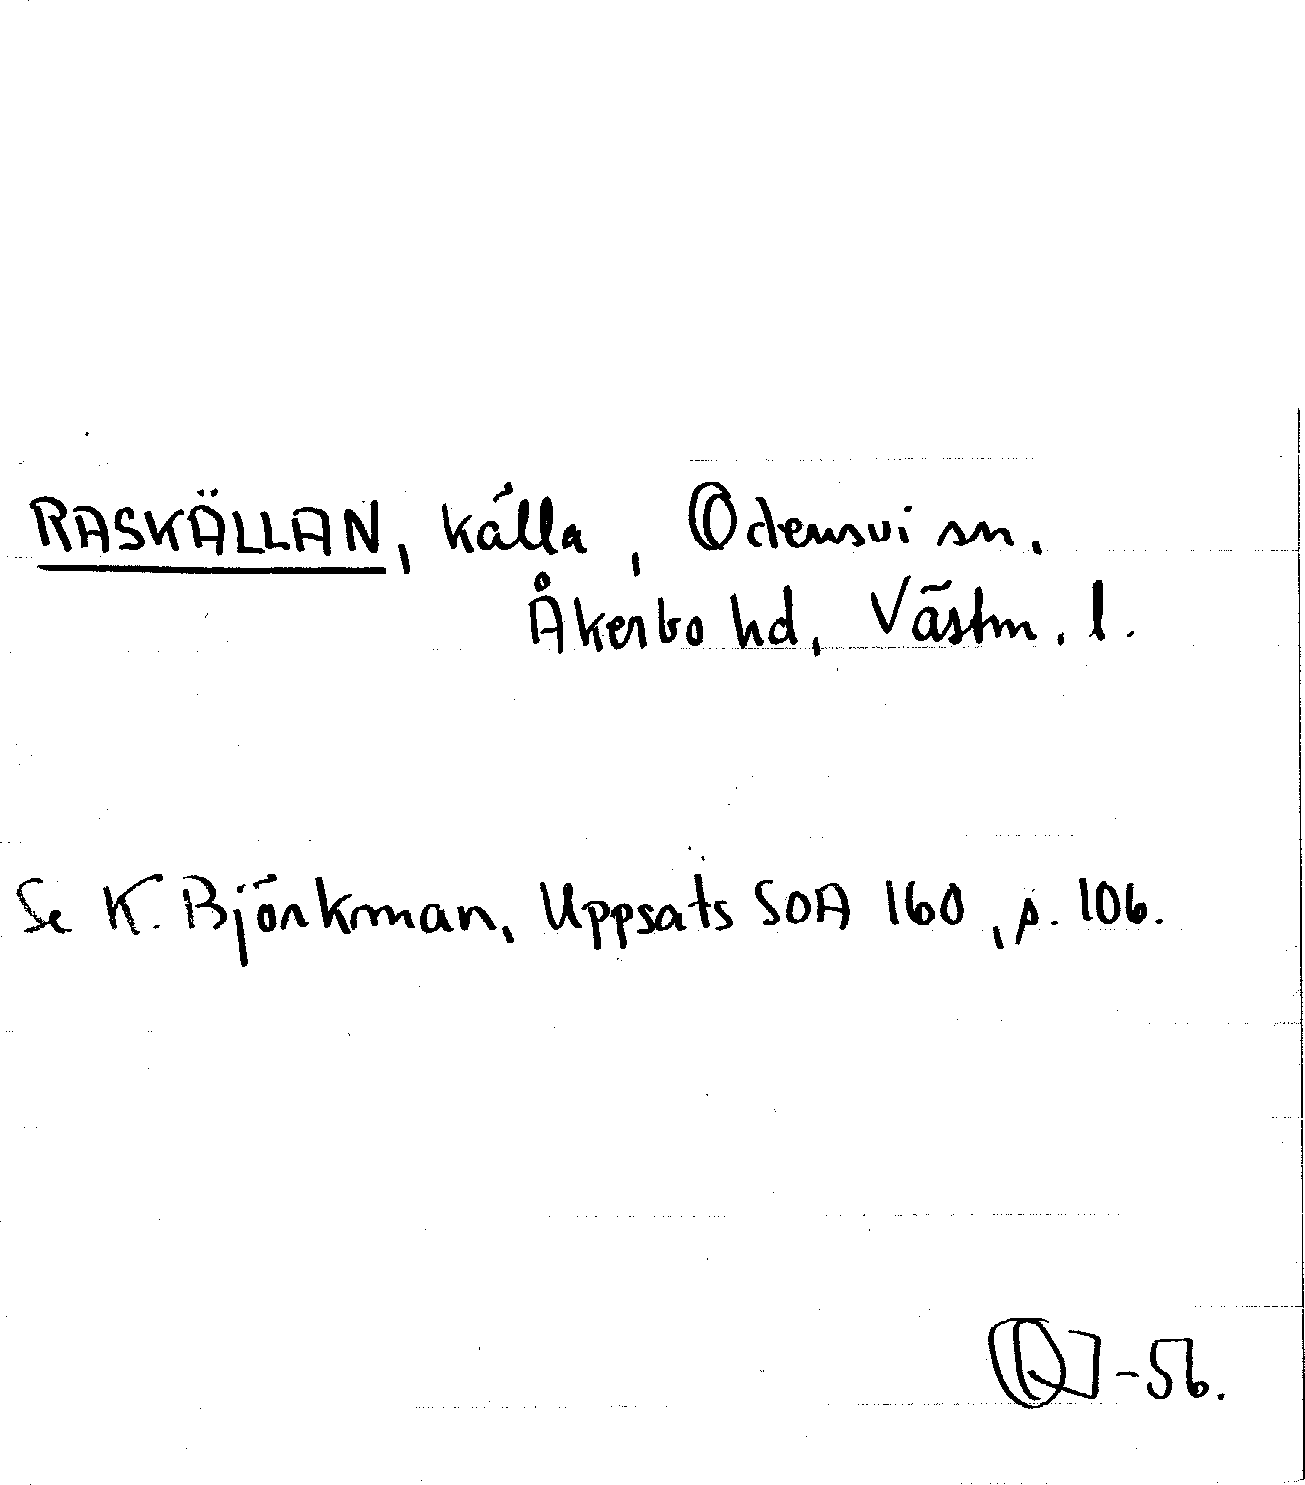 RASKÄLLAN, källa, Odensvi sn.
Åkerbo hd, Västm. l.
Se K. Björkman, Uppsats SOA 160, s. 106.
-56.